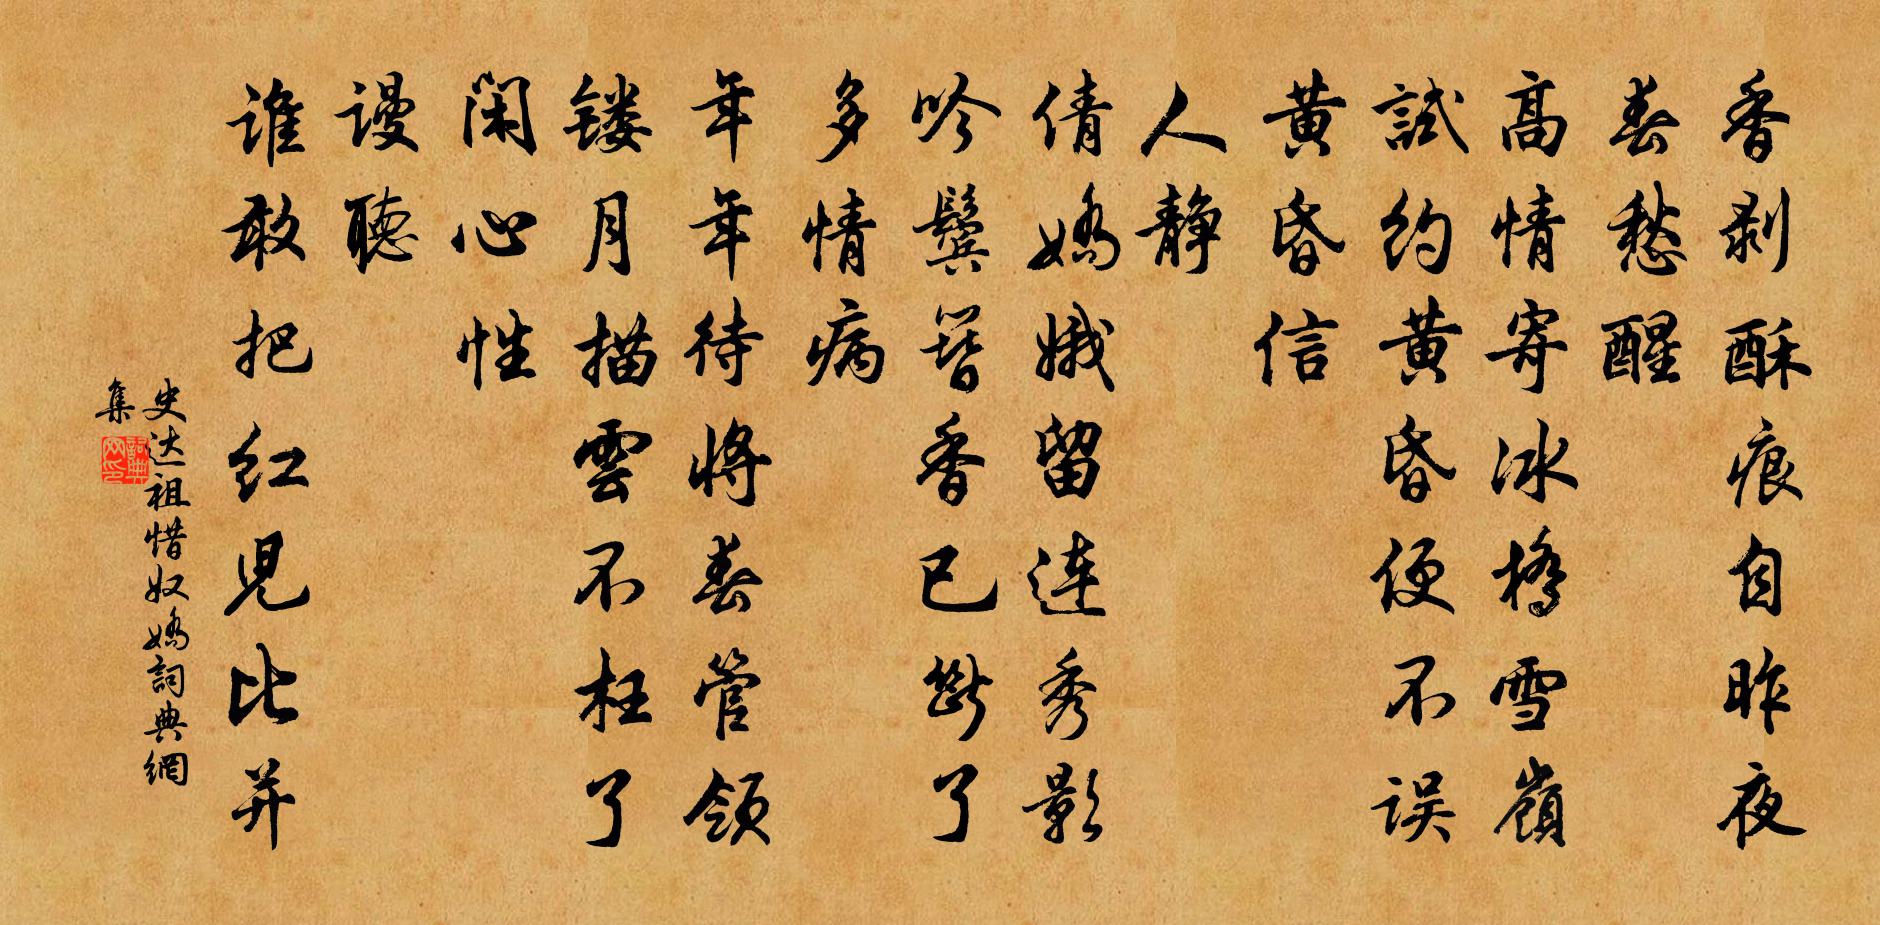 香剥酥痕自昨夜
春愁醒
高情寄冰橋雪嶺
試約黄昏便不误
黄昏信
人静
倩嬌娥留連秀影
吟鬓簪香已斷了
多情病
年年待将春管領
镂月描雲不枉了
闲心性
谩聽
谁敢把红兒比并
史达祖惜奴嬌詞典網
集